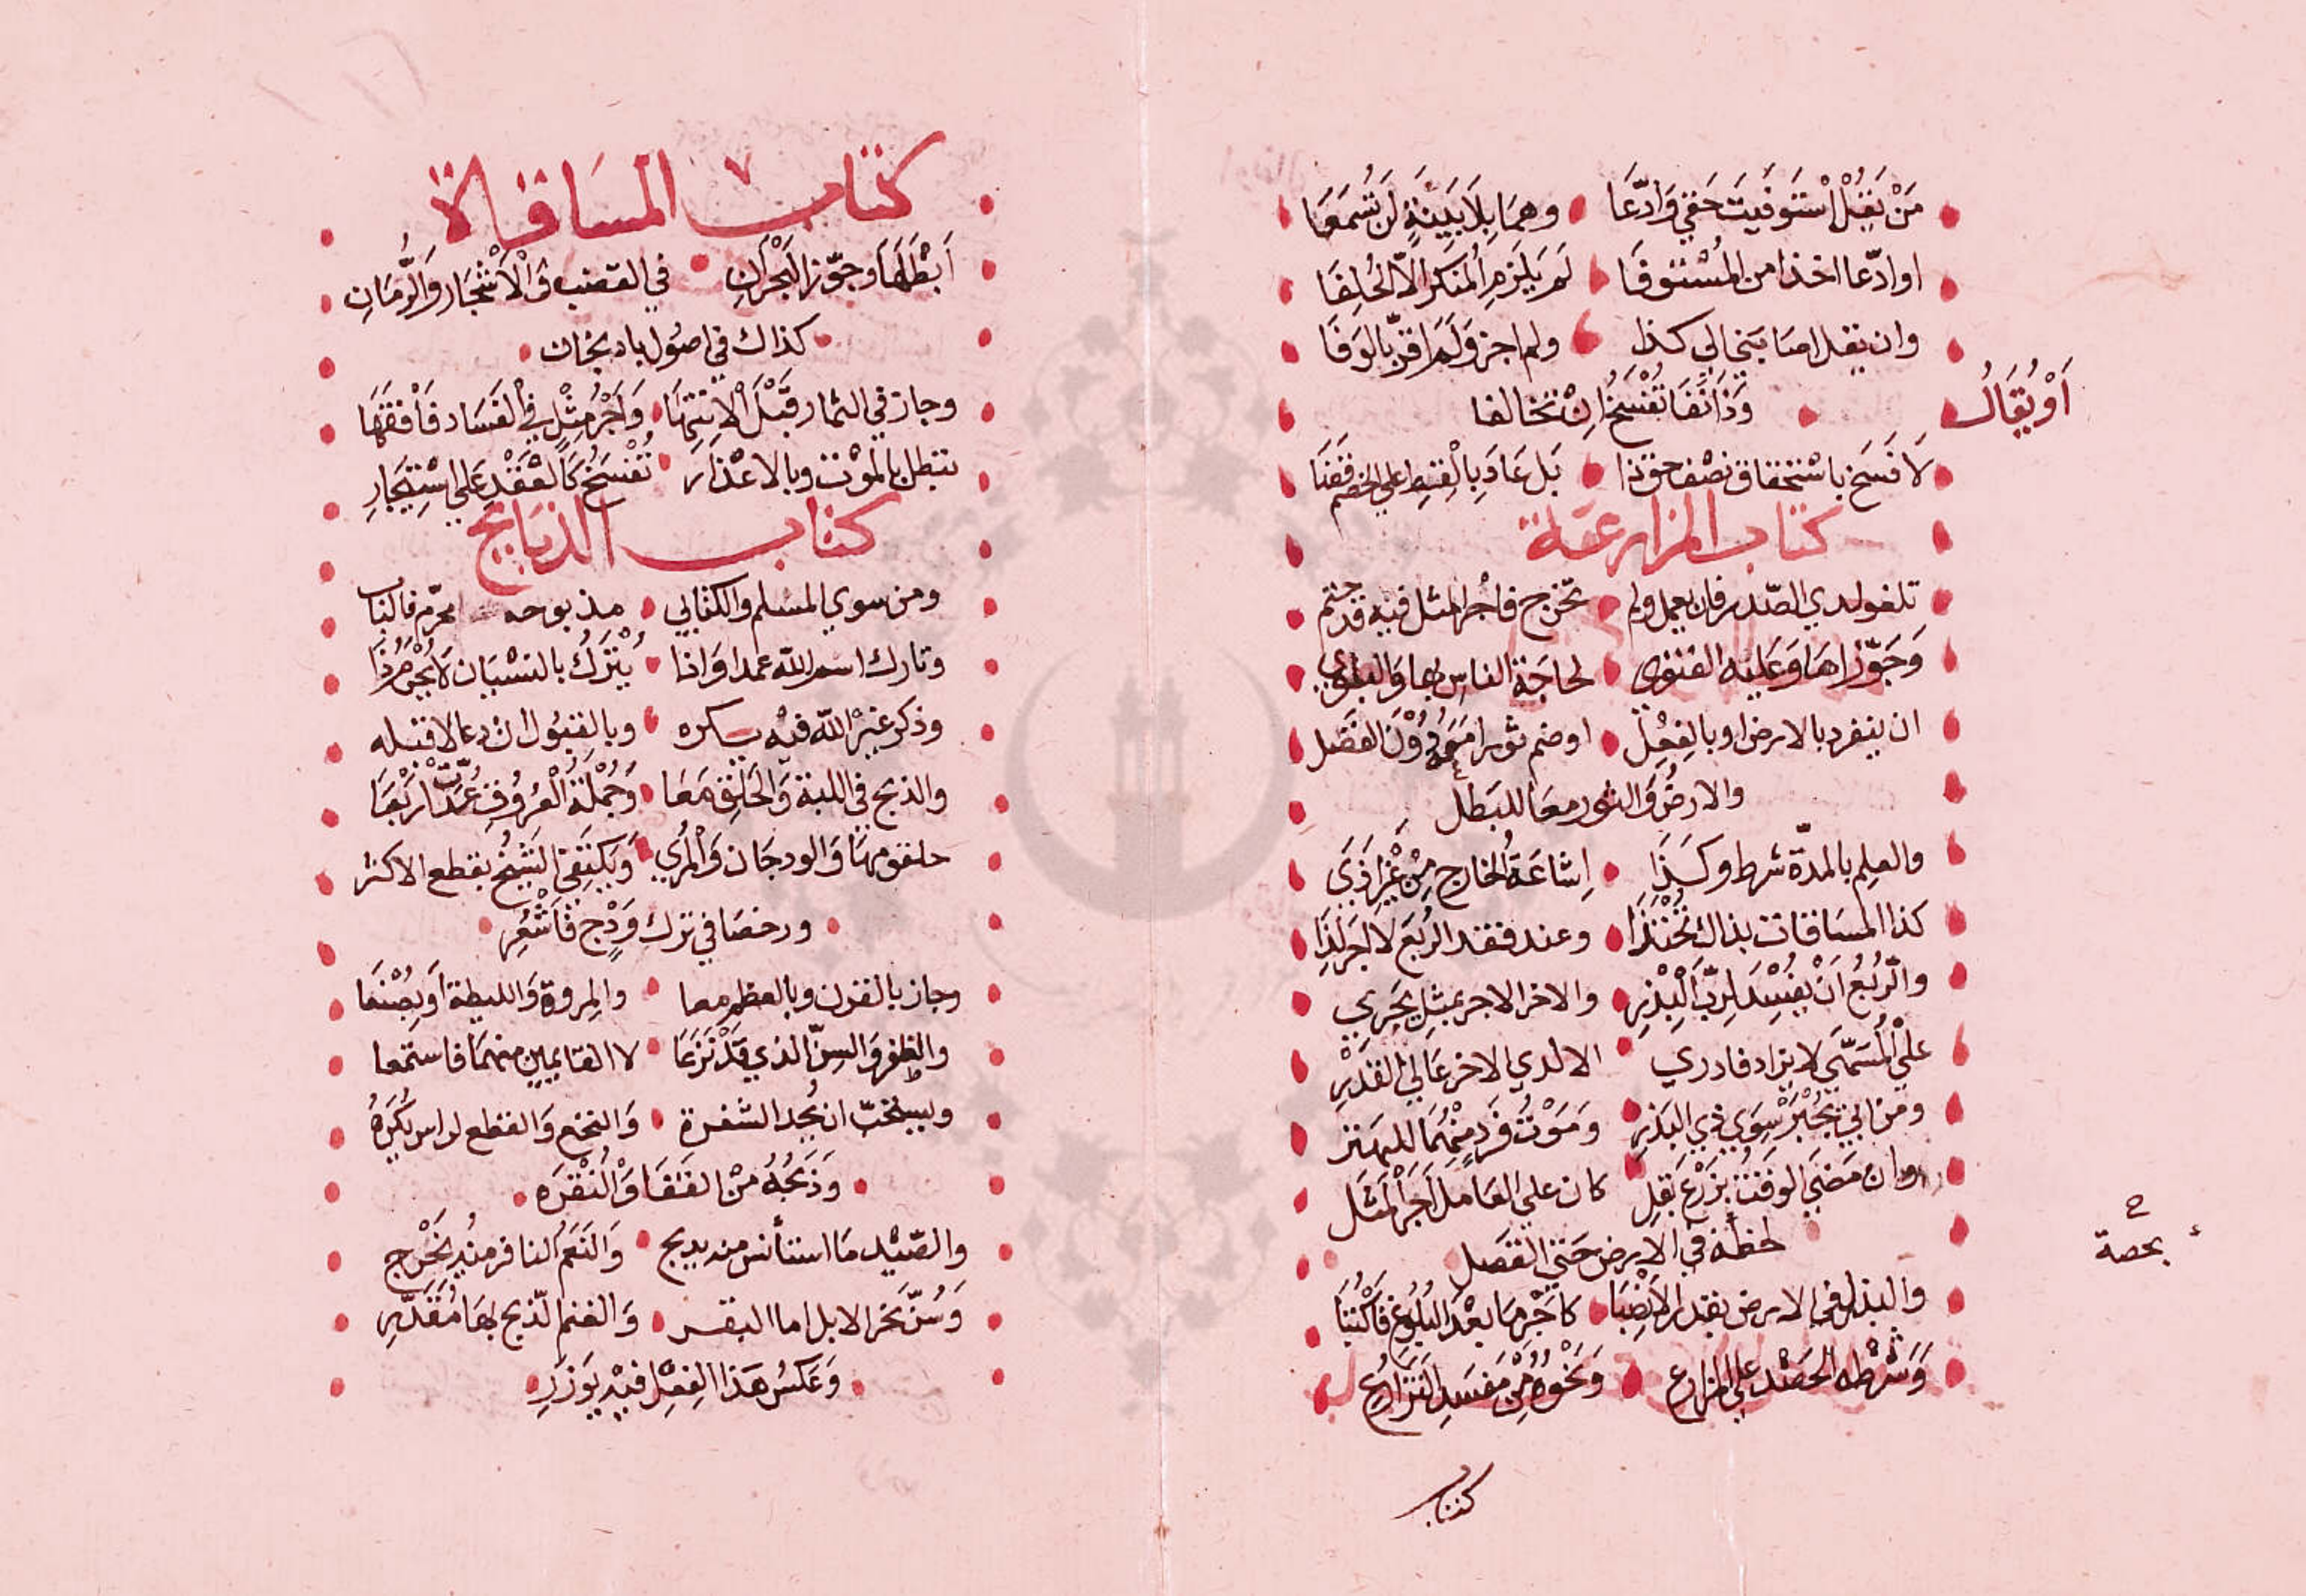 مَنْ يَقُلْ اسْتَوفَيتَ حَقي وَادَّعَا وهمَا بِلَا بَيِّنَةٍ لَن تُسْمَعَا
اوادّعا اخذا من المُسْتَوفَا لم يَلزمِ المُنكر الّا الحُلِفَا
وان يقل اصابني الي كذا ولم اجز وَلَم اقرّ بالوَفَا
اَوْ يُقَالُ وَذَا نَفَا تُفْسَخُ اِنْ تخالفا
لَا فَسَخ باسْتحقاق نصْف حق ذا بَل عَادَ بِالْقِسط علي الخصم
كتاب المزارعة
تلغو لدي الصّدر فان يعمل ولم تخرج فاجر المثل فيه قد حتم
وَجَوّزاهَا وَعَليه الفتوي لحاجَة الناس بها وَالبلوي
ان ينفرد بالارض او بالفِعْل اوضم ثورا دُوْنَ الفَضل
والارضُ وَالثور معَا للبَطل
والعلم بالمدّة شرط وكَذَا اِشاعَةُ الخارج مِنْ غَيْرِ اَذَي
كذا المسَاقات بذاك تُحْتَذَا وعند فقد الرُبَع لا اجر لذَا
والرُبُعُ اَنْ يفْسِدَ لِرَبّ البذرِ والاخر الاجر بمثل يجري
علي المُسَمّي لا يزاد فادري الا لدي الاخر عَالي القدْرِ
ومن ابي يُجْبَرْ سِوَي ذي البَذرِ وَمَوْتُ فَردٍ منْهُمَا
وان مَضَي الوَقتُ بزَرْع بَقلِ كان علي العَامل اجرَ المثَل
لحظه في الارض حَتي الفَصل
والبذل في الارض بقدر الاَنْصِبَا كاَجْرِهَا بعْدَ البُلُوغ فَاكْتُبَا
وَشَرْطه الحَصْد علي المزارع وَنَحْوُه مِنْ مَفسَدِ التزَارُع
بحصة
كتاب
كتاب المسَاقاة
اَبْطَلَهَا وَجوّز البَحْرانِ في القصب وَالْاَشْجَار وَالرُّمَانِ
كذاك في اصُول بادنجان
وجاز في الثمار قَبْلَ الاِنْتِهَا وَاجْرُ مِثْلٍ في الفَسَاد فَافْقَهَا
تبطل بالمَوْت وبالاعْذار تُفْسَخُ كَالعَقْدِ عَلي اسْتِيجَارِ
كتاب الذبَايح
ومن سوي المسلم والكتابي مذبوحه محرّم
وتارك اسم الله عمدا وَاذا يُتْرَكُ بالنسْيَان لَا يُحْرَمُ ذَا
وذكر غيْر الله فيْه يكره وبالقبُول ان دعا لا قبله
والذبح في اللبة وَالحَلق مَعَا وَجُمْلةُ الْعُرُوْقِ عُدّتْ اَرْبَعَا
حلقومهَا وَالودجَان وَالْمَري وَيَكْتَفي الشيْخُ بقطع الاكثر
ورخصَا في ترك وَدْجٍ فَاشْعُرِ
وجاز بالقرن وبالعظم معا والمروة وَالليطة اَو يُصْنَعَا
والظفر وَالسِنّ الذي قَدْ نَزَعَا لا القايمين منهمَا فاستمعا
ويستحبّ ان يُحد الشفرة وَالنخع وَالقطع لراس يُكْرَهُ
وَذَبْحُهُ مِنْ القَفَا وَالْنقْرَه
والصّيْد مَا استأنس منه يذبح وَالنَعَم النافر منْه يُجْرَح
وَسُنّ نَحر الابل اما البقر وَالغنم الذبح لهَا مُقدَّرِ
وَعَكسُ هَذا الفِعْل فيْه يوزَرِ